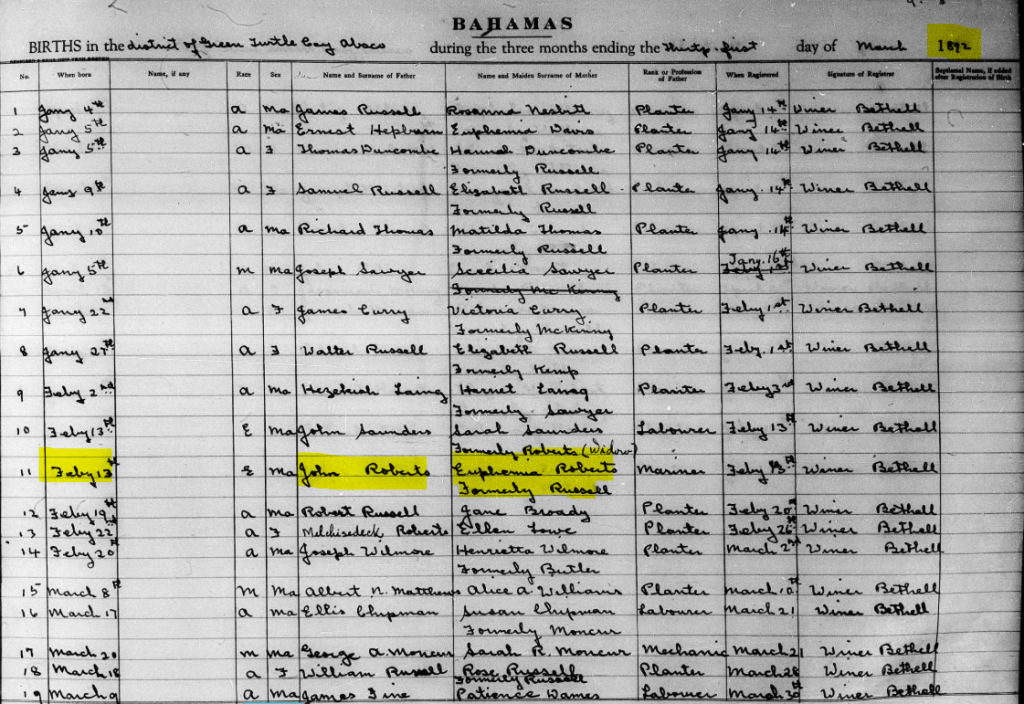 BAHAMAS
BIRTHS in the district of Green Turtle Cay Abaco during the three months ending the Thirty-first day of March 1892
No. When born Name, if any Race Sex Name and Surname of Father Name and Maiden Surname of Mother Rank or Profession of Father When Registered Signature of Registrar Baptismal Name, if added after Registration of Birth
1 Jany 4th a ma James Russell Rosanna Nesbitt Planter Jany 14th Winer Bethell
2 Jany 5th a ma Ernest Hepburn Euphemia Davis Planter Jany 14th Winer Bethell
3 Jany 5th a F Thomas Duncombe Hannah Duncombe Planter Jany 14th Winer Bethell
Formerly Russell
4 Jany 9th a F Samuel Russell Elizabeth Russell Planter Jany. 14th Winer Bethell
Formerly Russell
5 Jany 10th a ma Richard Thomas Matilda Thomas Planter Jany. 14th Winer Bethell
Formerly Russell
Jany. 16th
6 Jany 5th m ma Joseph Sawyer Scecilia Sawyer Planter Feby 1st Winer Bethell
Formerly McKinny
7 Jany 22nd a F James Curry Victoria Curry Planter Feby 1st Winer Bethell
Formerly McKinny
8 Jany 27th a F Walter Russell Elizabeth Russell Planter Feby. 1st Winer Bethell
Formerly Kemp
9 Feby 2nd a ma Hezekiah Laing Harriet Laing Planter Feby 3rd Winer Bethell
Formerly Sawyer
10 Feby 13th E Ma John Saunders Sarah Saunders Labourer Feby 13th Winer Bethell
Formerly Roberts (Widow)
11 Feby 13th E ma John Roberts Euphemia Roberts Mariner Feby Winer Bethell
Formerly Russell
12 Feby 19th a ma Robert Russell Jane Broady Planter Feby 20th Winer Bethell
13 Feby 22nd a F Melchisedeck Roberts Ellen Lowe Planter Feby 26th Winer Bethell
14 Feby 20th a ma Joseph Wilmore Henrietta Wilmore Planter March 2nd Winer Bethell
Formerly Butler
15 March 8th m Ma Albert N. Matthews Alice A Williams Planter March 10th Winer Bethell
16 March 17 a ma Ellis Chipman Susan Chipman Labourer March 21 Winer Bethell
Formerly Moncur
17 March 20 m ma George A. Moncur Sarah R. Moncur Mechanic March 21 Winer Bethell
18 March 18 a F William Russell Rose Russell Planter March 28 Winer Bethell
Formerly Russell
19 March 9 a Ma James Patience Dames Labourer March 30th Winer Bethell